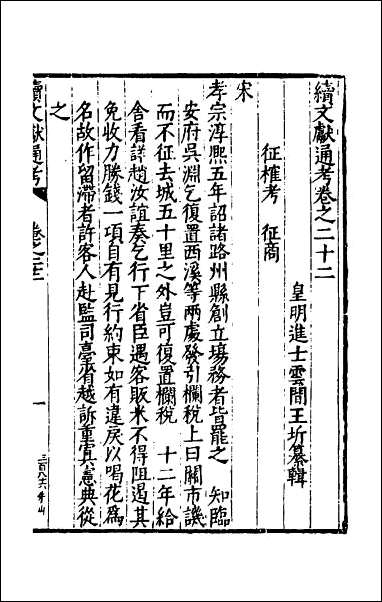 續文獻通考卷之二十二
皇明進士雲間王圻纂輯
征榷考　征商
宋
孝宗淳熙五年詔諸路州縣創立場務者皆罷之　知臨
安府吳淵乞復置西溪等兩處發引欄稅上曰關市譏
而不征去城五十里之外豈可復置欄稅　十二年給
舍看詳趙汝誼奏乞行下省臣遇客販米不得阻遏其
免收力勝錢一項自有見行約束如有違戾以喝花為
名故作留滯者許客人赴監司臺省越訴重寘憲典從
之
續文獻通考
卷之二十二
一
三百八六